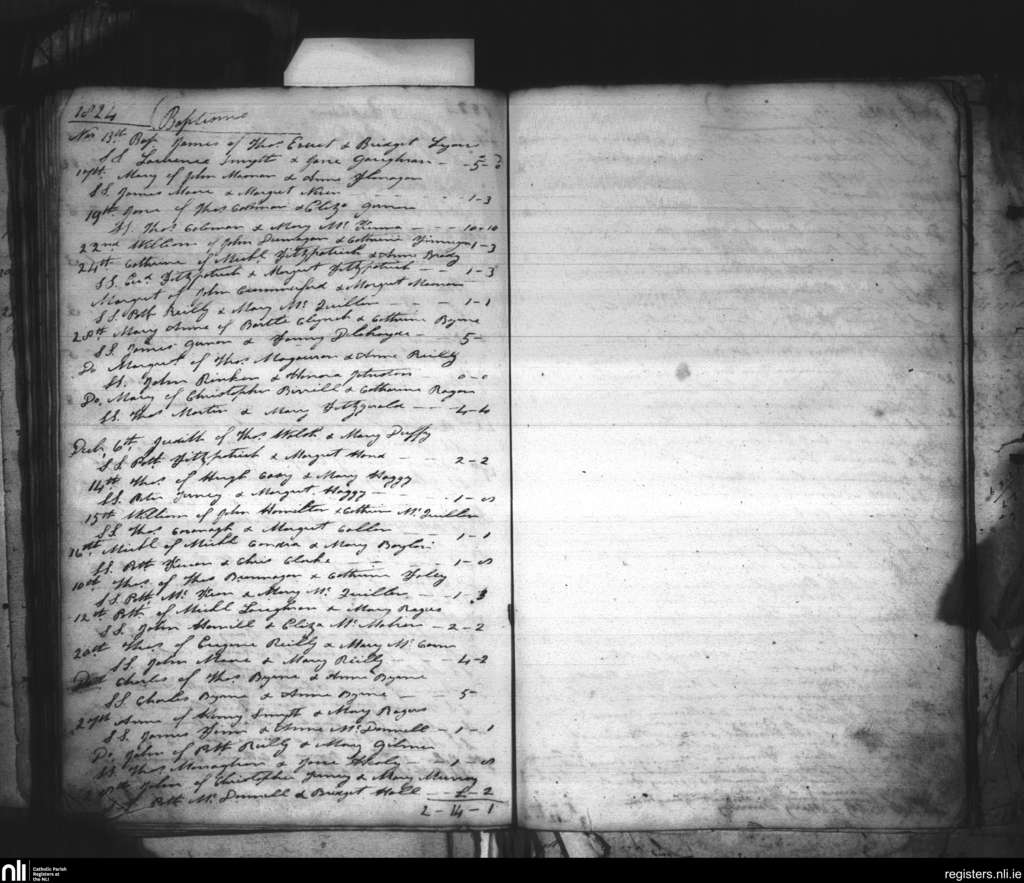 1824
Baptisms
Nov 13th Bap James of Thos & Bridget Lyons
SS Laurence Smyth & Jane Gaughran - 5 -
17th Mary of John & Anne Flanagan
SS James Moore & Margret - 1-3
19th Jane of Thos Coleman & Eliza
SS Thos Coleman & Mary Mc Kenna - - - 10-10
22nd William of John & Catherine Finnegan 1-3
24th Catherine of Michl Fitzpatrick & Anne Brady
SS Fitzpatrick & Margret Fitzpatrick - - 1-3
Margret of John Cummerford & Margret
SS Patt Reilly & Mary Mc Quillan - - 1-1
28th Mary Anne of Bartle Clynch & Catherine Byrne
SS James & Fanny Delahoyde - 5-
Do Margret of Thos Magouran & Anne Reilly
SS John & Honora Johnston - 0-0
Do Mary of Christopher Birrill & Catherine Ragan
SS Thos Martin & Mary Fitzgerald - - 4-4
Decb 6th Judith of Thos Walsh & Mary Duffy
SS Patt Fitzpatrick & Margret - - 2-2
14th Thos of Hugh & Mary Haggy
SS Peter & Margret Haggy - - 1-8
15th William of John Hamilton & Catherine Mc Quillan
SS Thos Cavanagh & Margret - 1-1
16th Michl of Michl Condra & Mary
SS Patt & Clarke - - 1-8
10th Thos of Thos Brannagan & Catherine Foley
SS Patt Mc & Mary Mc Quillan - 1-3
12th Patt of Michl Loughran & Mary
SS John & Eliza Mc Mahon - 2-2
20th Thos of Eugene Reilly & Mary Mc Cann
SS John Moore & Mary Reilly - - 4-2
Do Charles of Thos Byrne & Anne Byrne
SS Charles Byrne & Anne Byrne - 5-
27th Anne of Henry Smyth & Mary
SS James & Anne Mc Donnell - 1-1
Do John of Patt Reilly & Mary
SS Thos Monaghan & Jane - 1-8
John of Christopher & Mary Murray
Patt Mc Donnell & Bridget Hall - 2
2-14-1
nli
Catholic Parish
Registers at
the NLI
registers.nli.ie